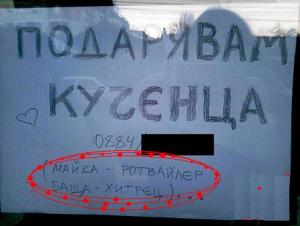 ПОДАРЯВАМ
КУЧЕНЦА
0884/
(МАЙКА - РОТВАЙЛЕР
БАЩА - ХИТРЕЦ)